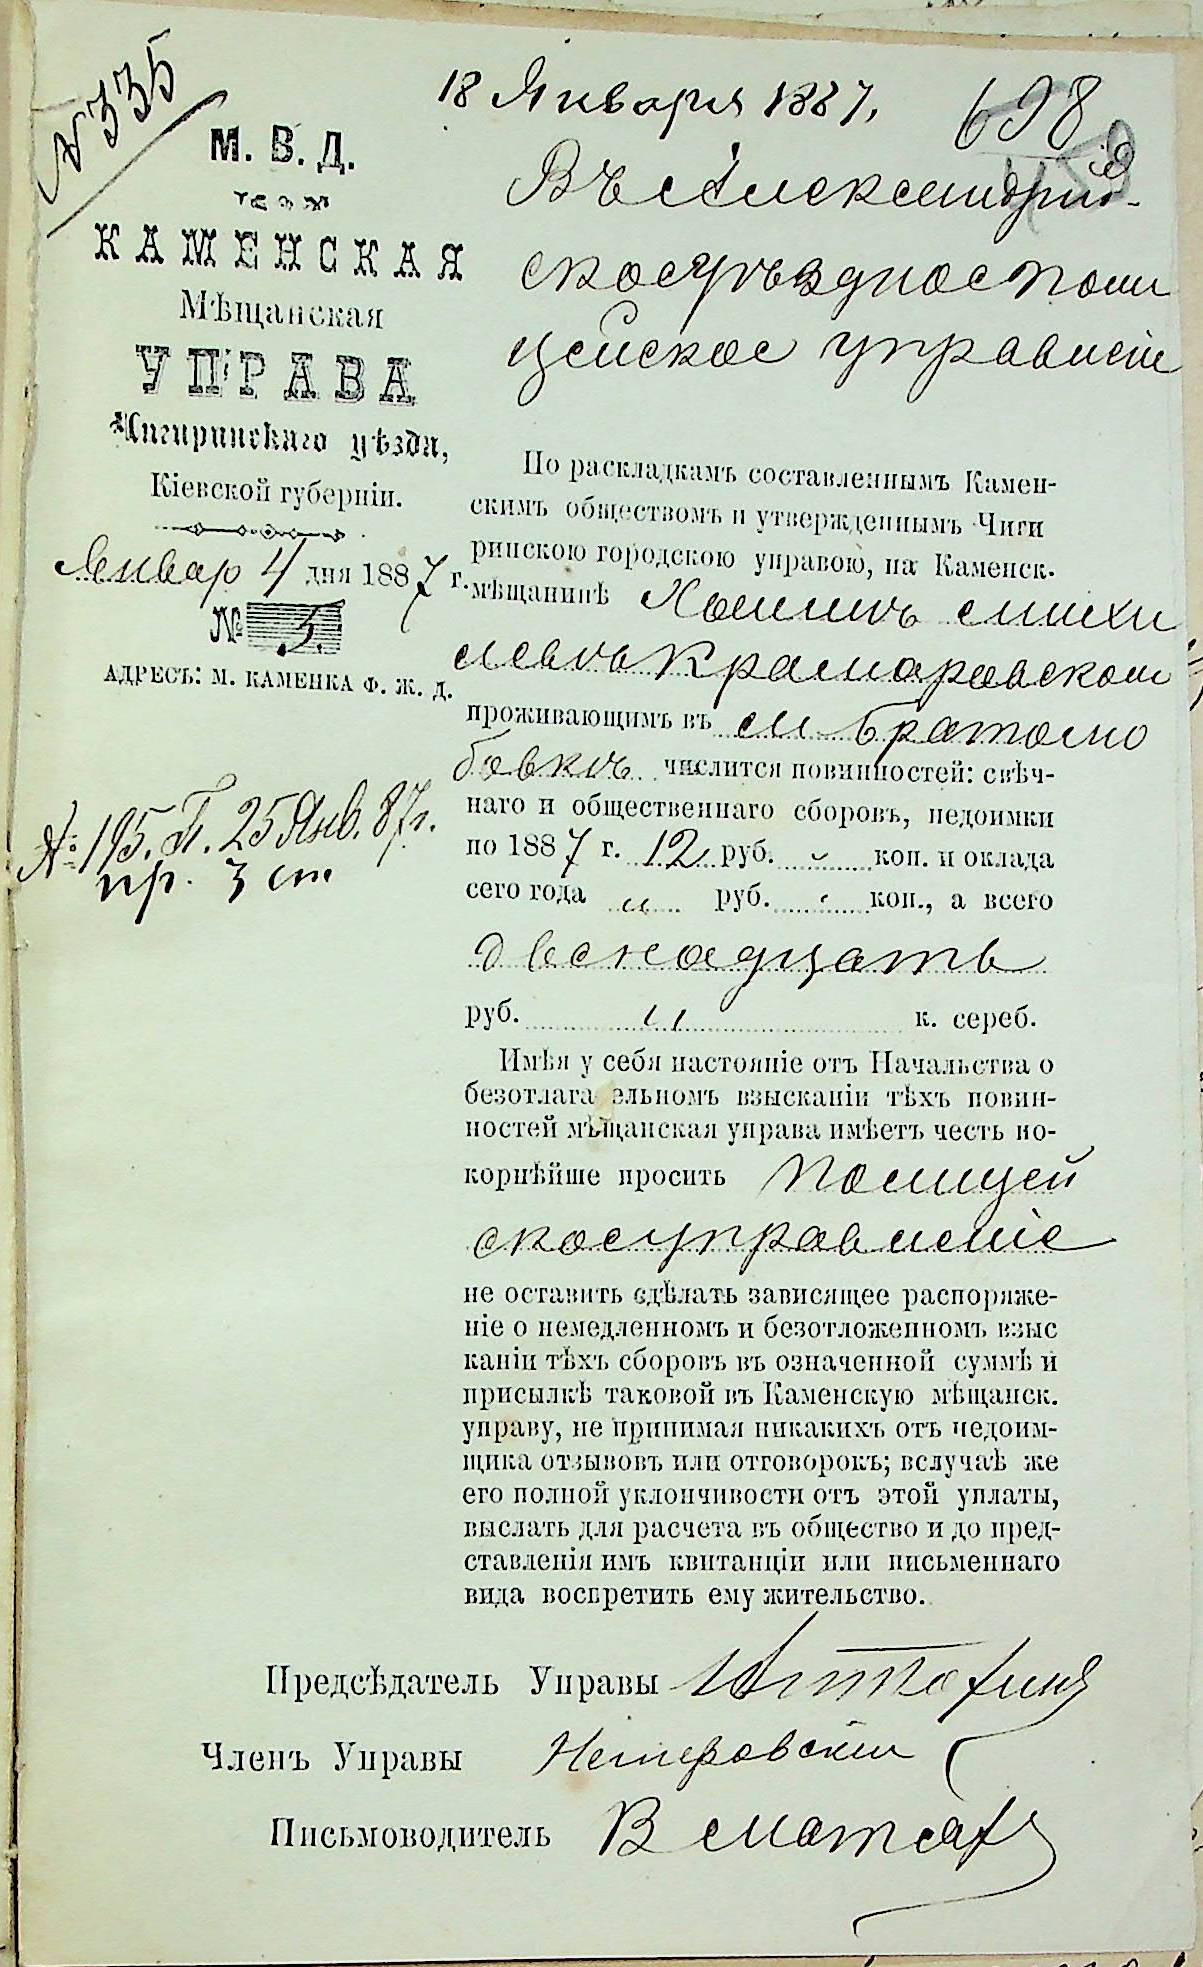 N 335
18 Января 1887,
698
М. В. Д.
КАМЕНСКАЯ
Мѣщанская
УПРАВА
Чигиринскаго уѣзда,
Кіевской губерніи.
Январ 4 дня 1887 г.
№ 3.
АДРЕСЪ: М. КАМЕНКА Ф. Ж. Д.
№ 195. П. 25 Янв. 87 г.
пр. 3 ст
Въ Александрій-
ское уѣздное поли
цейское управленіе
По раскладкамъ составленнымъ Камен-
скимъ обществомъ и утвержденнымъ Чиги
ринскою городскою управою, на Каменск.
мѣщанинѣ
Крамаровском
проживающимъ въ м Братолю
бовкѣ числится повинностей: свѣч-
наго и общественнаго сборовъ, недоимки
по 1887 г. 12 руб. коп. и оклада
сего года руб. коп., а всего
двенадцать
руб. " к. сереб.
Имѣя у себя настояніе отъ Начальства о
безотлага ельномъ взысканіи тѣхъ повин-
ностей мѣщанская управа имѣетъ честь по-
корнѣйше просить полицей
ское управленіе
не оставить сдѣлать зависящее распоряже-
ніе о немедленномъ и безотложенномъ взыс
каніи тѣхъ сборовъ въ означенной суммѣ и
присылкѣ таковой въ Каменскую мѣщанск.
управу, не принимая никакихъ отъ недоим-
щика отзывовъ или отговорокъ; вслучаѣ же
его полной уклончивости отъ этой уплаты,
выслать для расчета въ общество и до пред-
ставленія имъ квитанціи или письменнаго
вида воспретить ему жительство.
Предсѣдатель Управы
Членъ Управы
Письмоводитель В